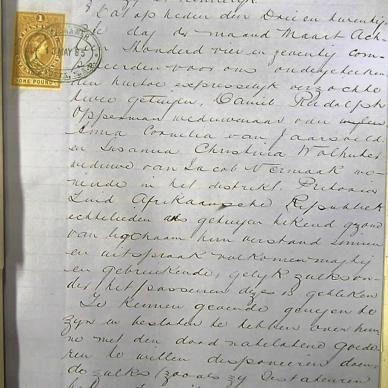 ONE POUND
MAY 89
Stat op heden den Drie en twintig
ste dag de maand Maart Ach
honderd vier en zeventig com
eerden voor ons ondergeteeken
den hiertoe expresselijk verzochte
twee getuigen, Daniel Rudolph
Opperman weduwenaar van wijlen
Anna Cornelia van Jaarsveld
en Susanna Christina Wolhuter
weduwe van Jacob Vermaak wo
nende in het distrikt Pretoria
Zuid Afrikaansche Republiek
echtelieden als getuigen kikend gzond
van lighaam hun verstand zinnen
en uitspraak volkomen magtig
en gebruikende, gelijk zulks on
der het passeren dezes is gebleken
Te kennen gevende genegen te
zijn en besloten te hebben over hun
ne met den dood natelatene goede
ren te willen disponeren doen
de zulks (zooals zij Testateuren